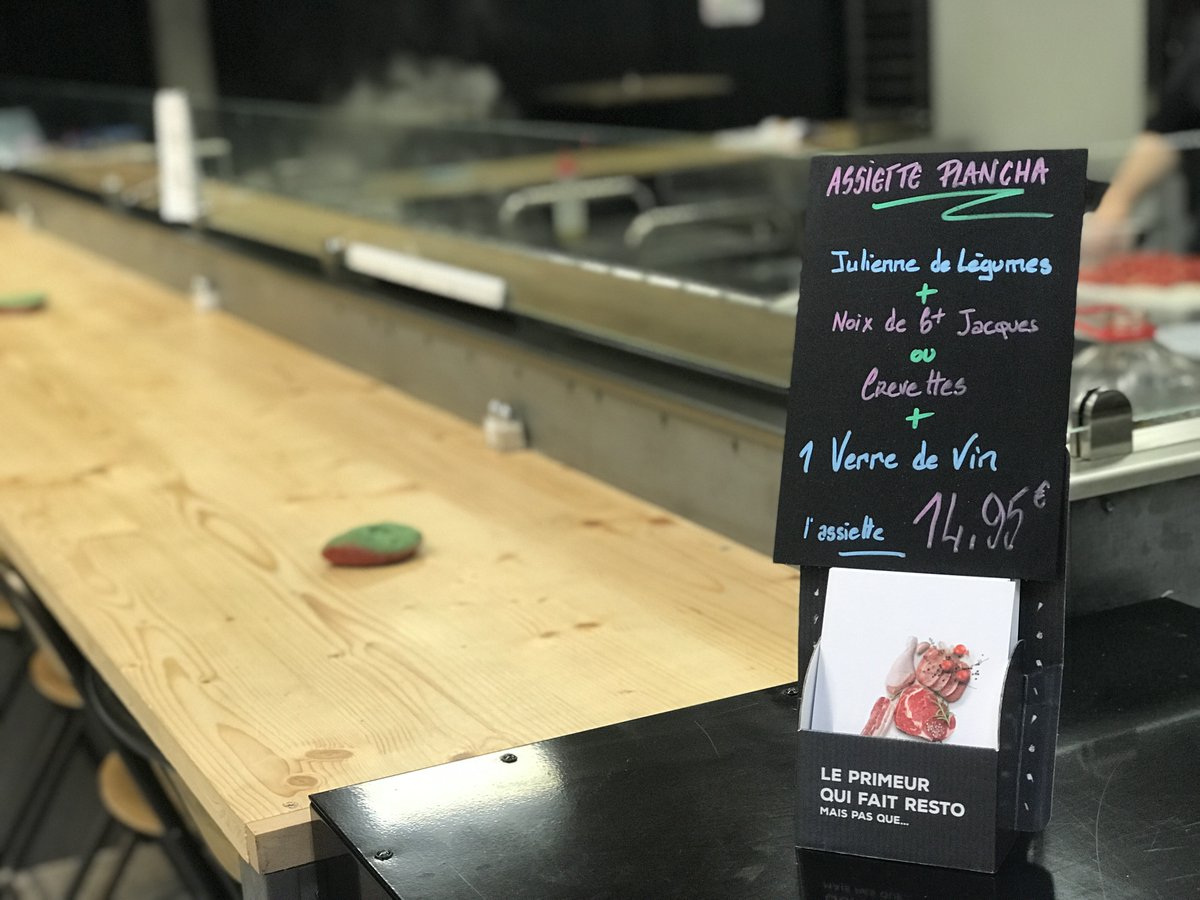 ASSIETTE PLANCHA
Julienne de Légumes
+
Noix de St Jacques
ou
Crevettes
+
1 Verre de Vin
l'assiette 14,95€
LE PRIMEUR
QUI FAIT RESTO
MAIS PAS QUE...